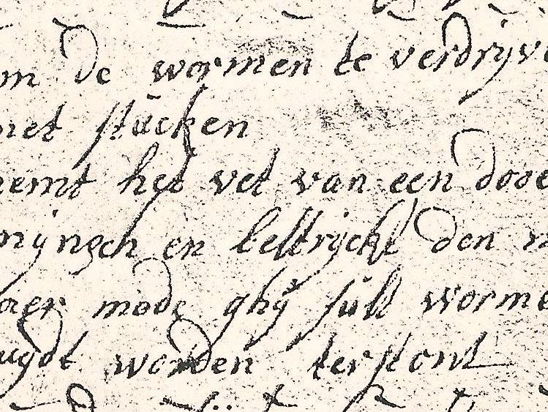 m de wormen te verdryve
net stücken
nemt het vet van een dooe
mÿnsch en bestryckt den n
aer mede ghÿ sült worme
uÿdt worden terstont